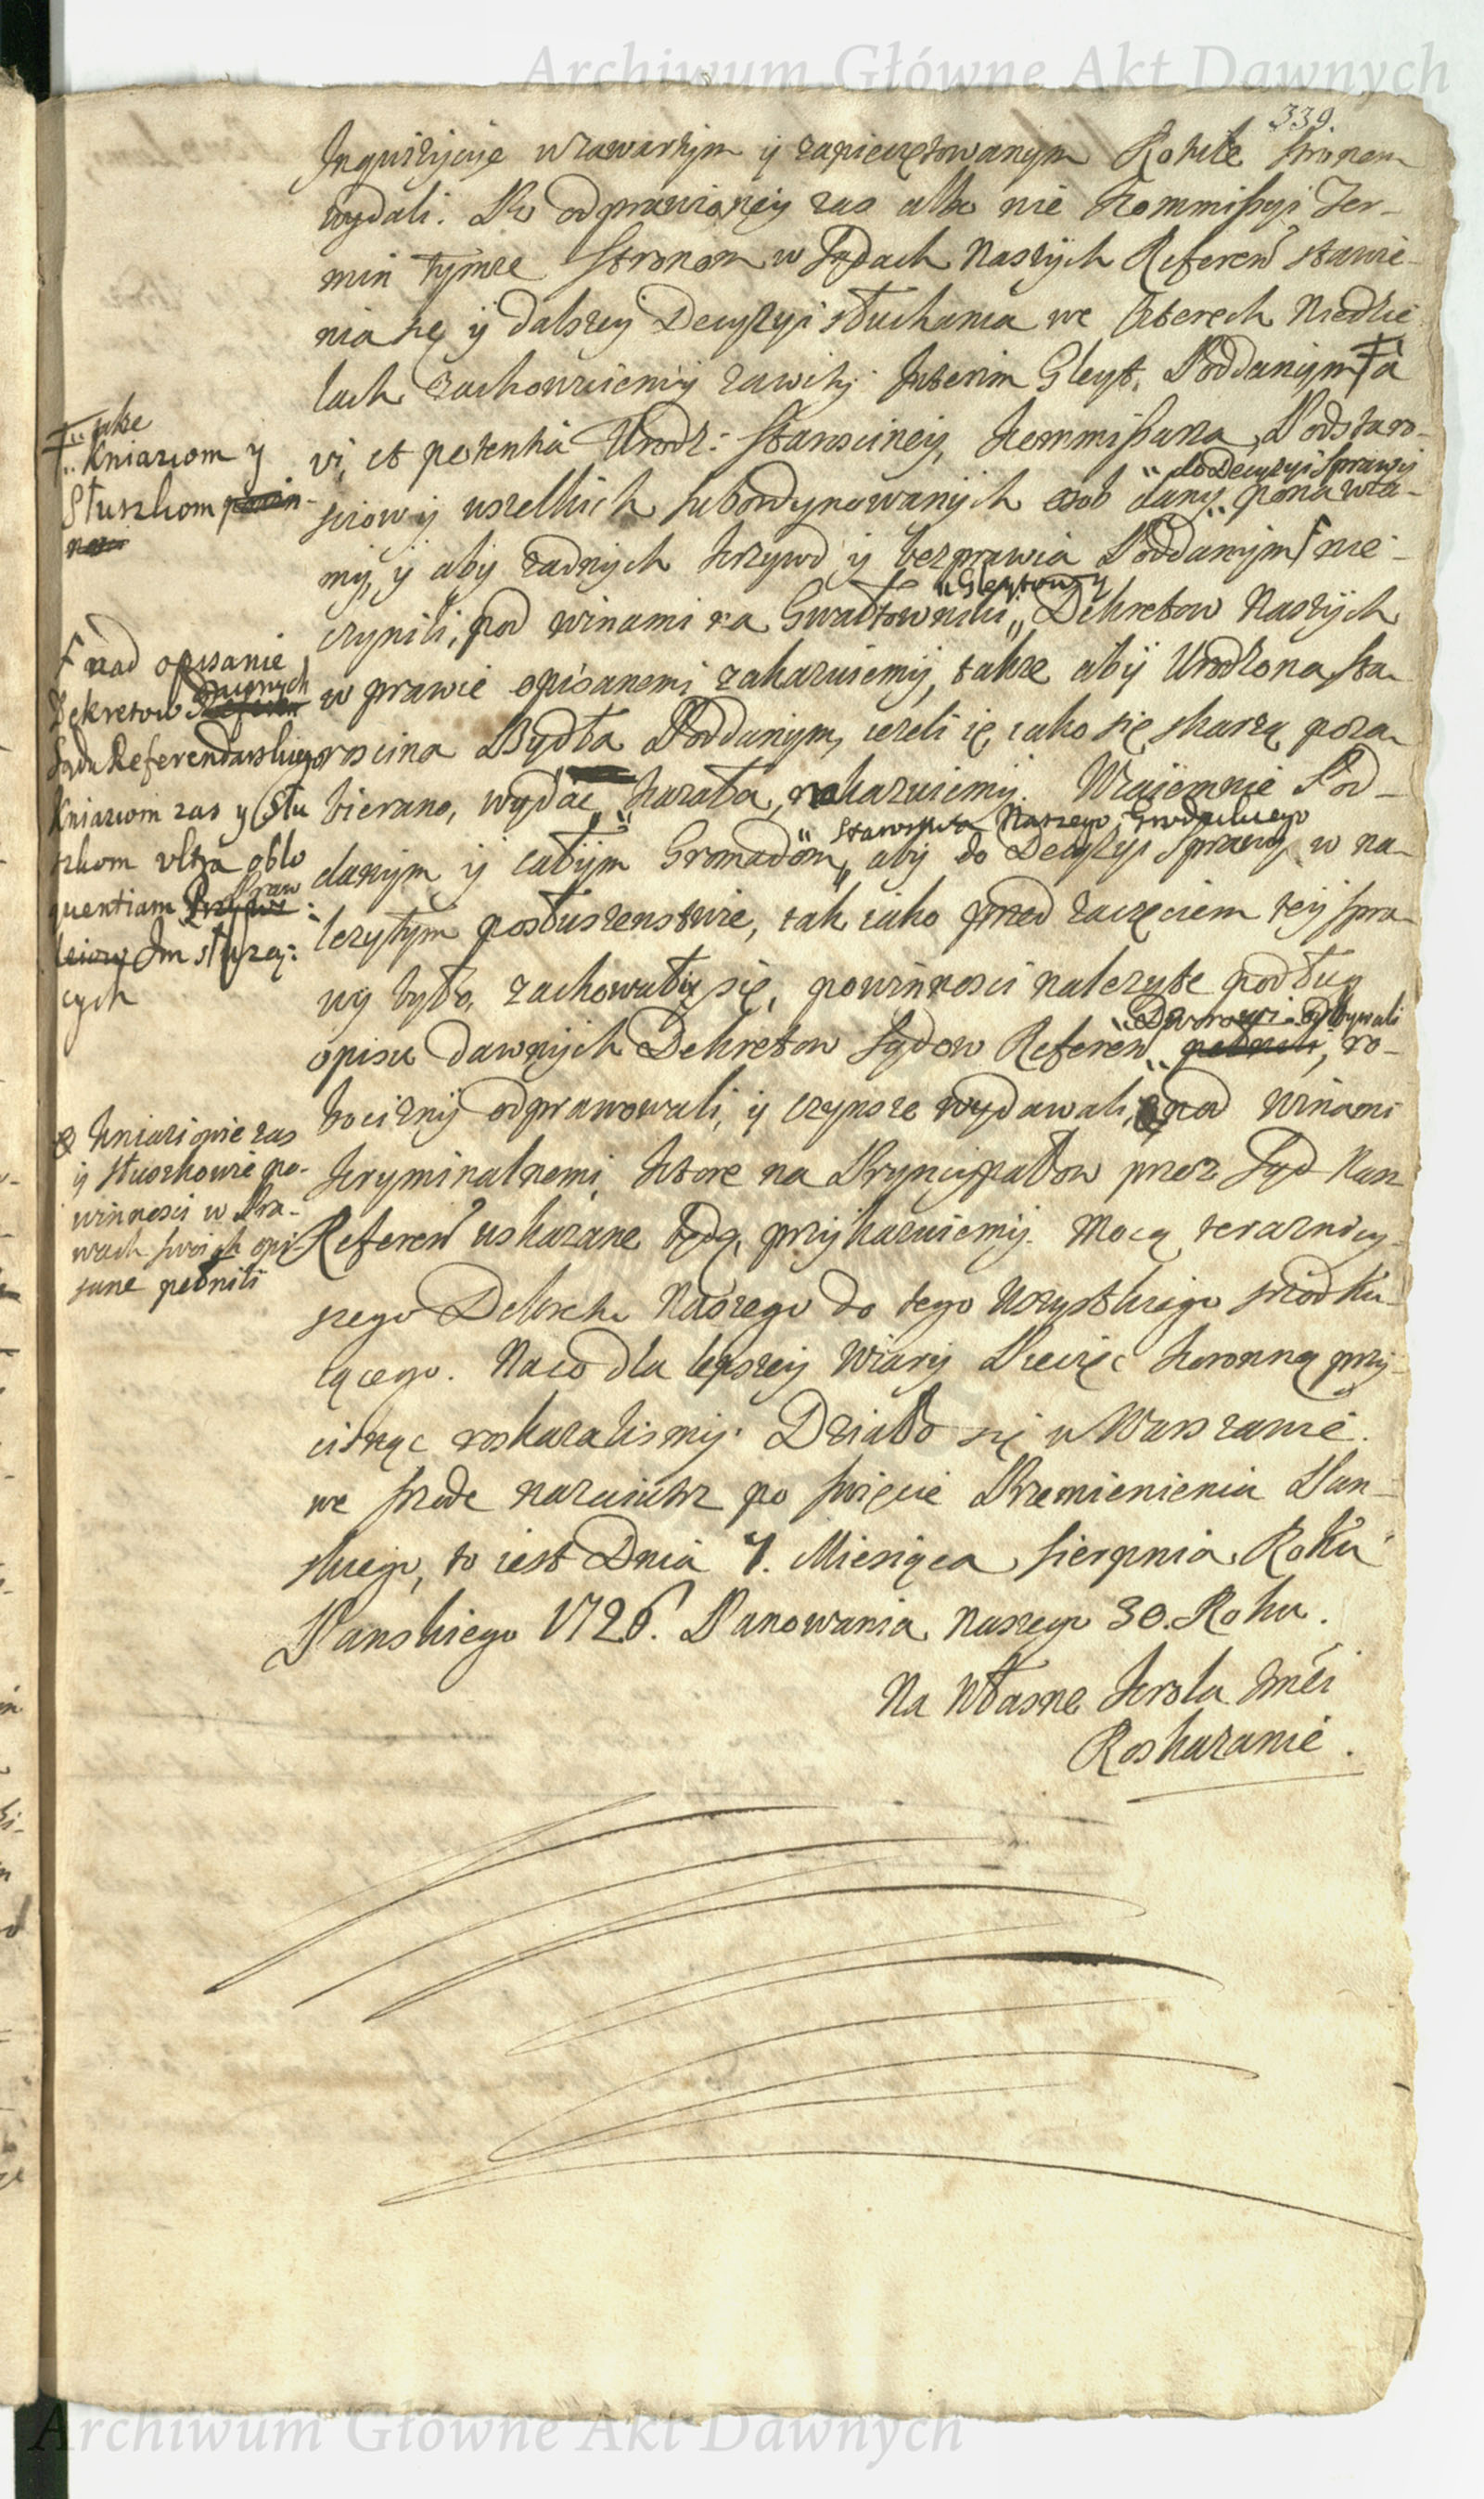 Archiwum Główne Akt Dawnych
339.
Inquizycye w zawartym y zapieczętowanym Rotule stronom
wydali. Po odprawioney zas albo nie Kommissyi Ter-
min tymze Stronom w Sądach Naszych Referen stawie-
nia się y dalszey Decyzyi słuchania we czterech Niedzie
lach zachowuiemy zawity. Interim Gleyt, Poddanym a
vi, et potentia Urodz: Starosciney, Kommissarza, Podstaro-
do Decyzyi Sprawy
sciow y wszelkich subordynowanych osob dany ponawia-
my, y aby zadnych krzywd y bezprawia Poddanym nie
Gleytowy
czynili, pod winami na Gwałtowniki Dekretow Naszych
w prawie opisanemi zakazuiemy, takze aby Urodzona Sta-
roscina Bydła Poddanym, iezeli ie, iako się skarzą poza-
bierano, wydać kazała, nakazuiemy. Wzaiemnie Pod-
Starostwa Naszego Grodeckiego
danym y całym Gromadom, aby do Decyzyi Sprawy w na-
lezytym posłuszenstwie, tak iako przed zaczęciem tey spra-
wy było, zachowały się, powinnosci nalezyte podług
Dworowi odbywali
opisu dawnych Dekretow Sądow Referen pełnili, ro-
bocizny odprawowali, y czynsze wydawali, pod winami
kryminalnemi, ktore na Pryncypałow przez Sąd Nasz
Referen wskazane będą, przykazuiemy. Mocą terazniey-
szego Dekretu Naszego do tego wszystkiego srzodku-
iącego. Na co dla lepszey wiary Pieczęć Koronną przy-
cisnąc roskazalismy. Działo się w Warszawie.
we srzode nazaiutrz po swięcie Przemienienia Pan-
skiego, to iest Dnia 7. Miesiąca Sierpnia, Roku
Panskiego 1726. Panowania Naszego 30. Roku.
Na Własne Krola Jmći
Roskazanie.
takze
Kniaziom y
Słuzkom powin-
nosci
nad opisanie
dawnych
Dekretow Referen
Sądu Referendarskiego
Kniaziom zas y Słu
zkom vltra oblo
Praw
quentiam Przywi:
leiow Im słuzą:
cych
Kniaziowie zas
y słuszkowie po-
winnosci w Pra-
wach swoich opi-
sane pełnili
Archiwum Główne Akt Dawnych